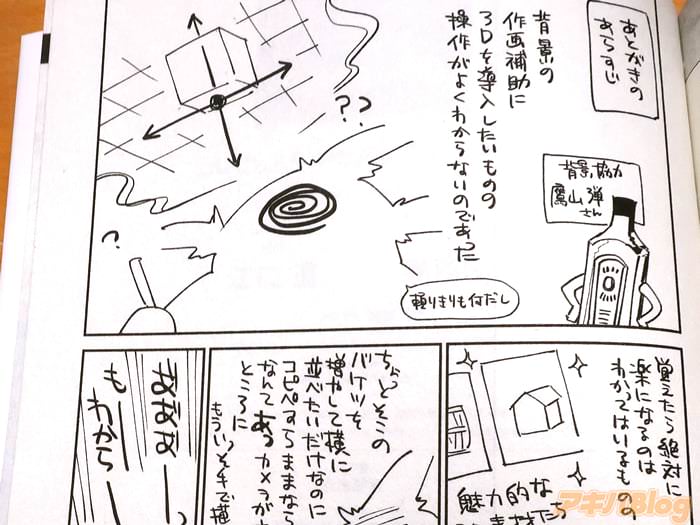 あとがきの
あらすじ
背景の
作画補助に
3Dを導入したいものの
操作がよくわからないのであった
??
?
背景協力
鷹山弾
さん
頼りきりも何だし
覚えたら絶対に
楽になるのは
わかってはいるものの
魅力的な
ちょっとそこの
バケツを
増やして横に
並べたいだけなのに
コピペすらままなら
なんてあっカメラが
ところに
もういっそ手で描
ななな
もー
わからー
アキバBlog